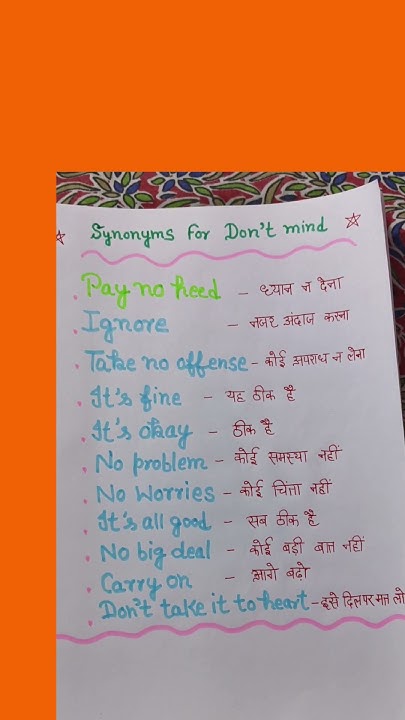 Synonyms for Don't mind
Pay no heed - ध्यान न देना
Ignore - नजर अंदाज करना
Take no offense - कोई अपराध न लेना
It's fine - यह ठीक है
It's okay - ठीक है
No problem - कोई समस्या नहीं
No Worries - कोई चिंता नहीं
It's all good - सब ठीक है
No big deal - कोई बड़ी बात नहीं
Carry on - आगे बढ़ो
Don't take it to heart - इसे दिल पर मत लो